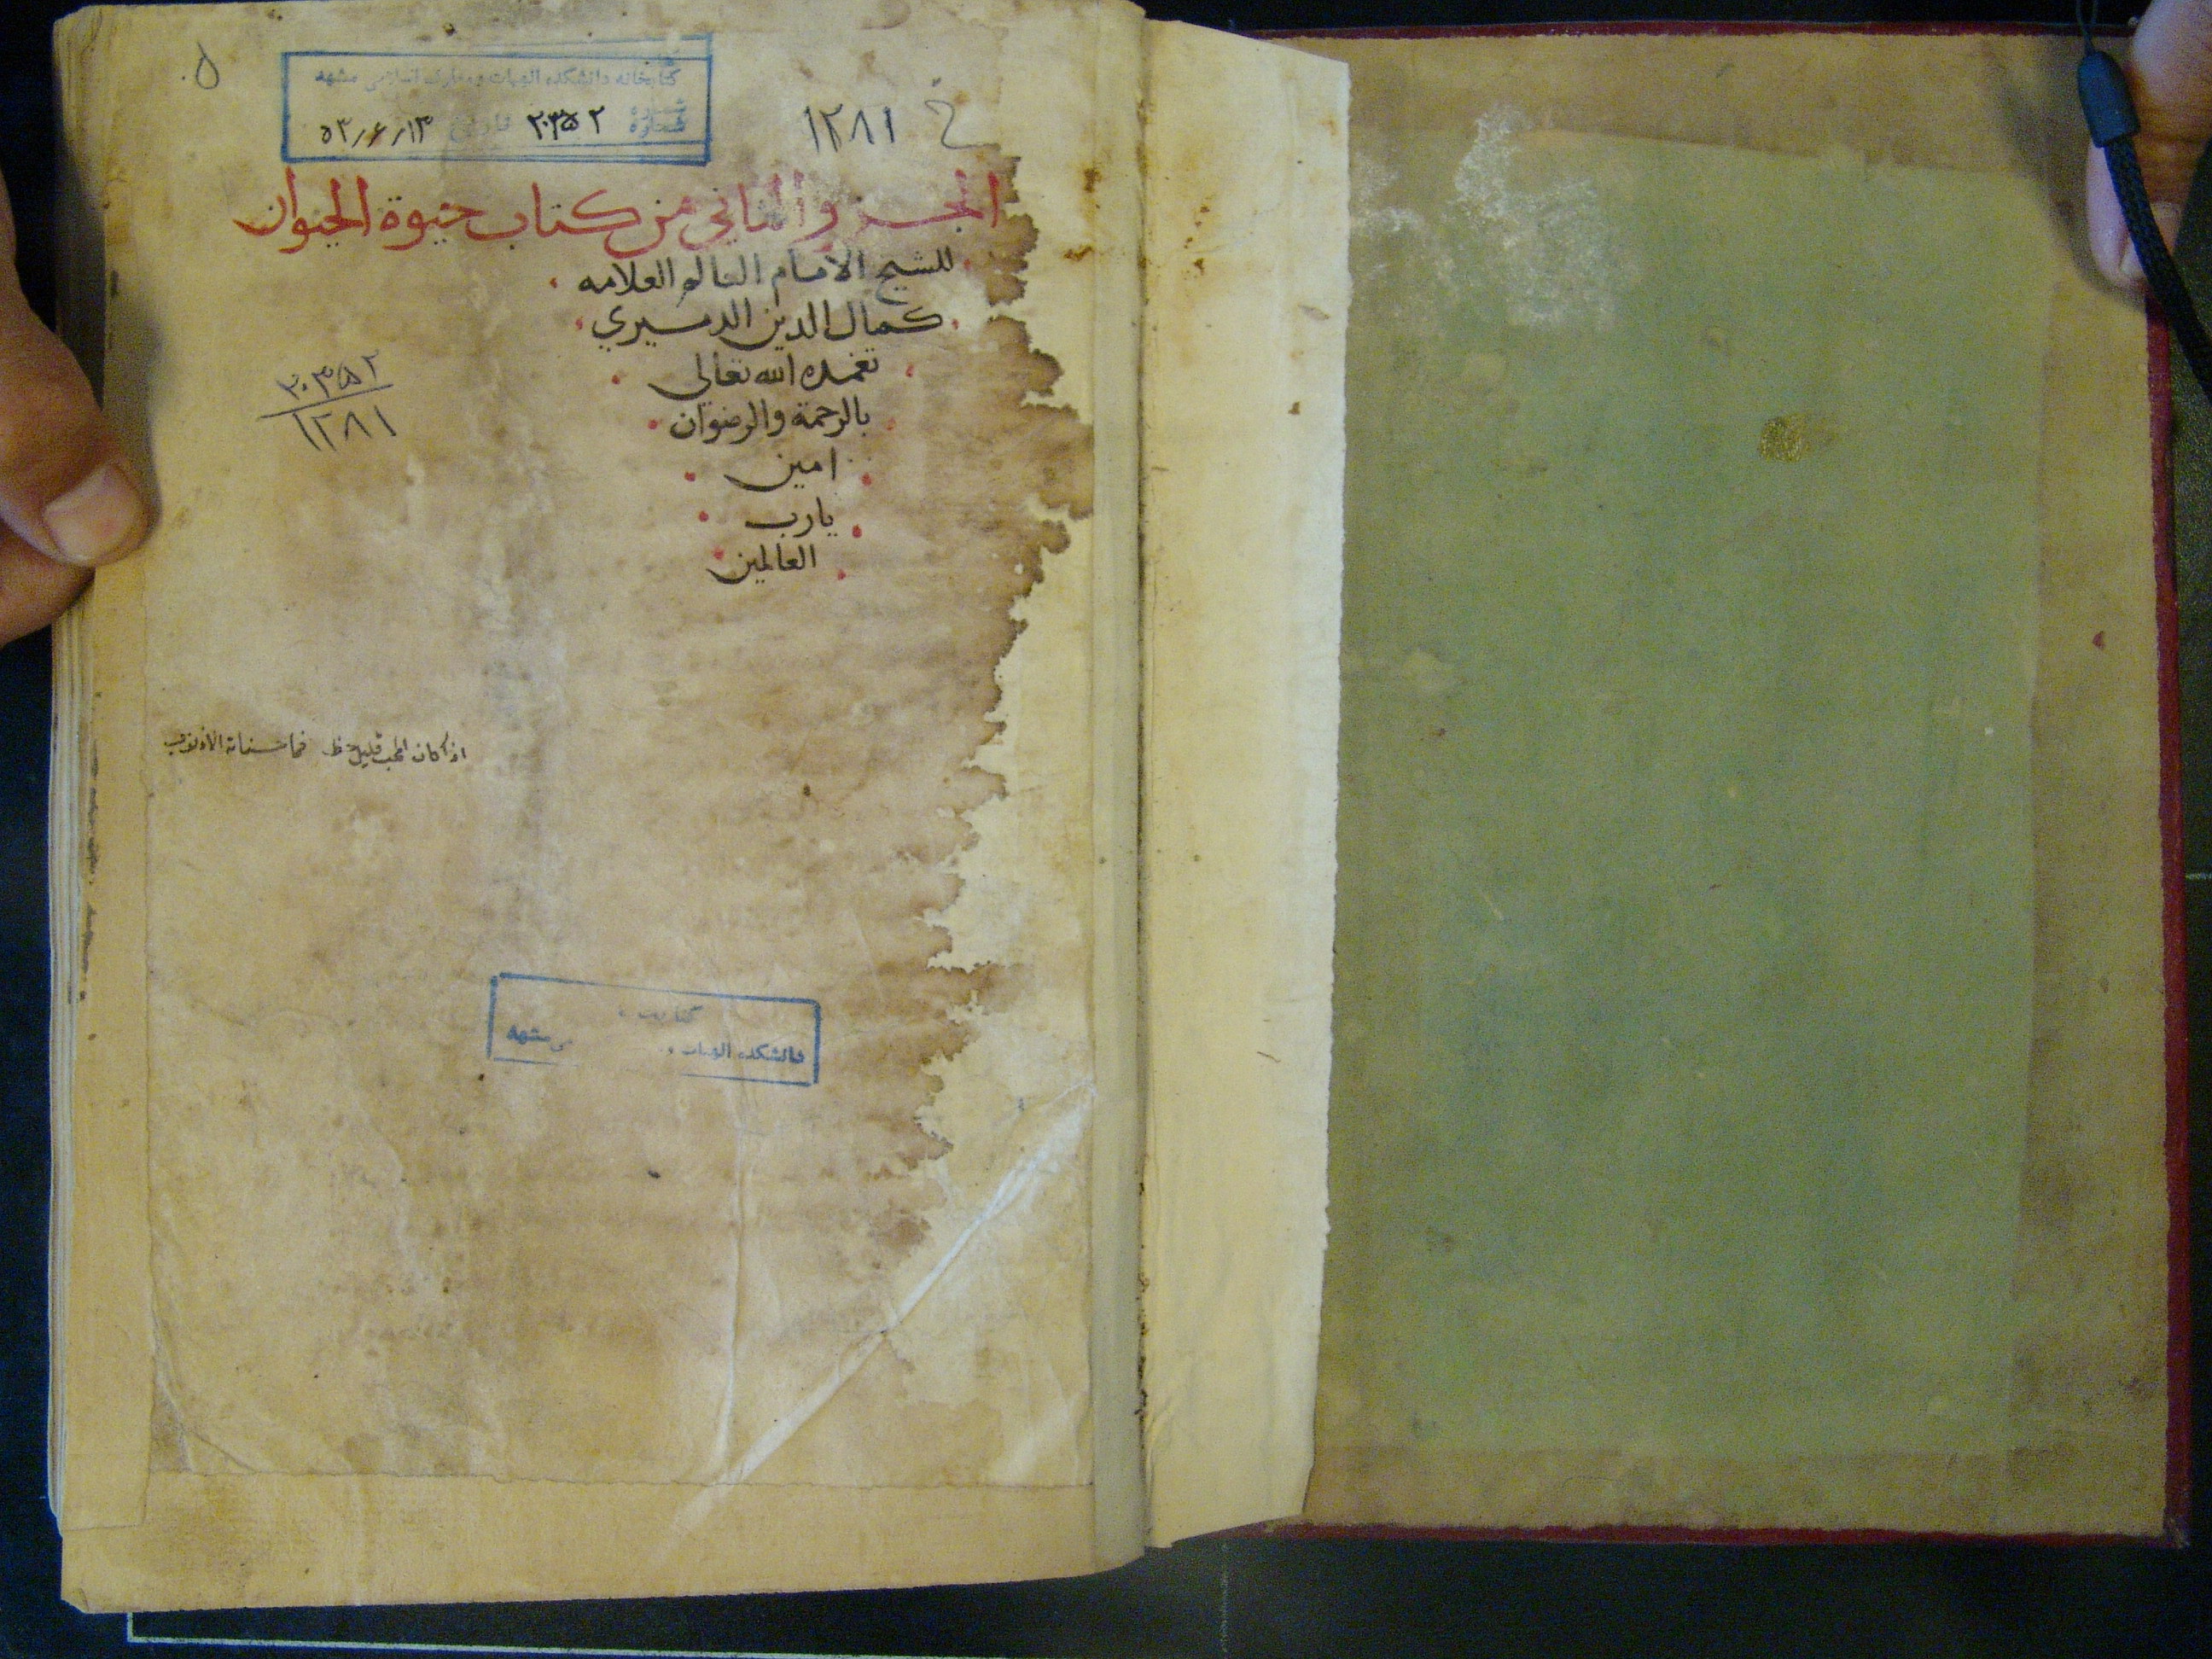 کتابخانه دانشکده الهیات و معارف اسلامی مشهد
شماره ۲۰۳۵۲ تاریخ ۵۳/۶/۱۳
خ ۱۲۸۱
الجزو الثاني من كتاب حيوة الحيوان
للشيخ الامام العالم العلامه
كمال الدين الدميري
تغمده الله تعالى
بالرحمة والرضوان
امين
يارب
العالمين
۲۰۳۵۲
۱۲۸۱
اذا كان المحب قليل حظ فما حسناته الا ذنوب
دانشکده الهیات مشهد